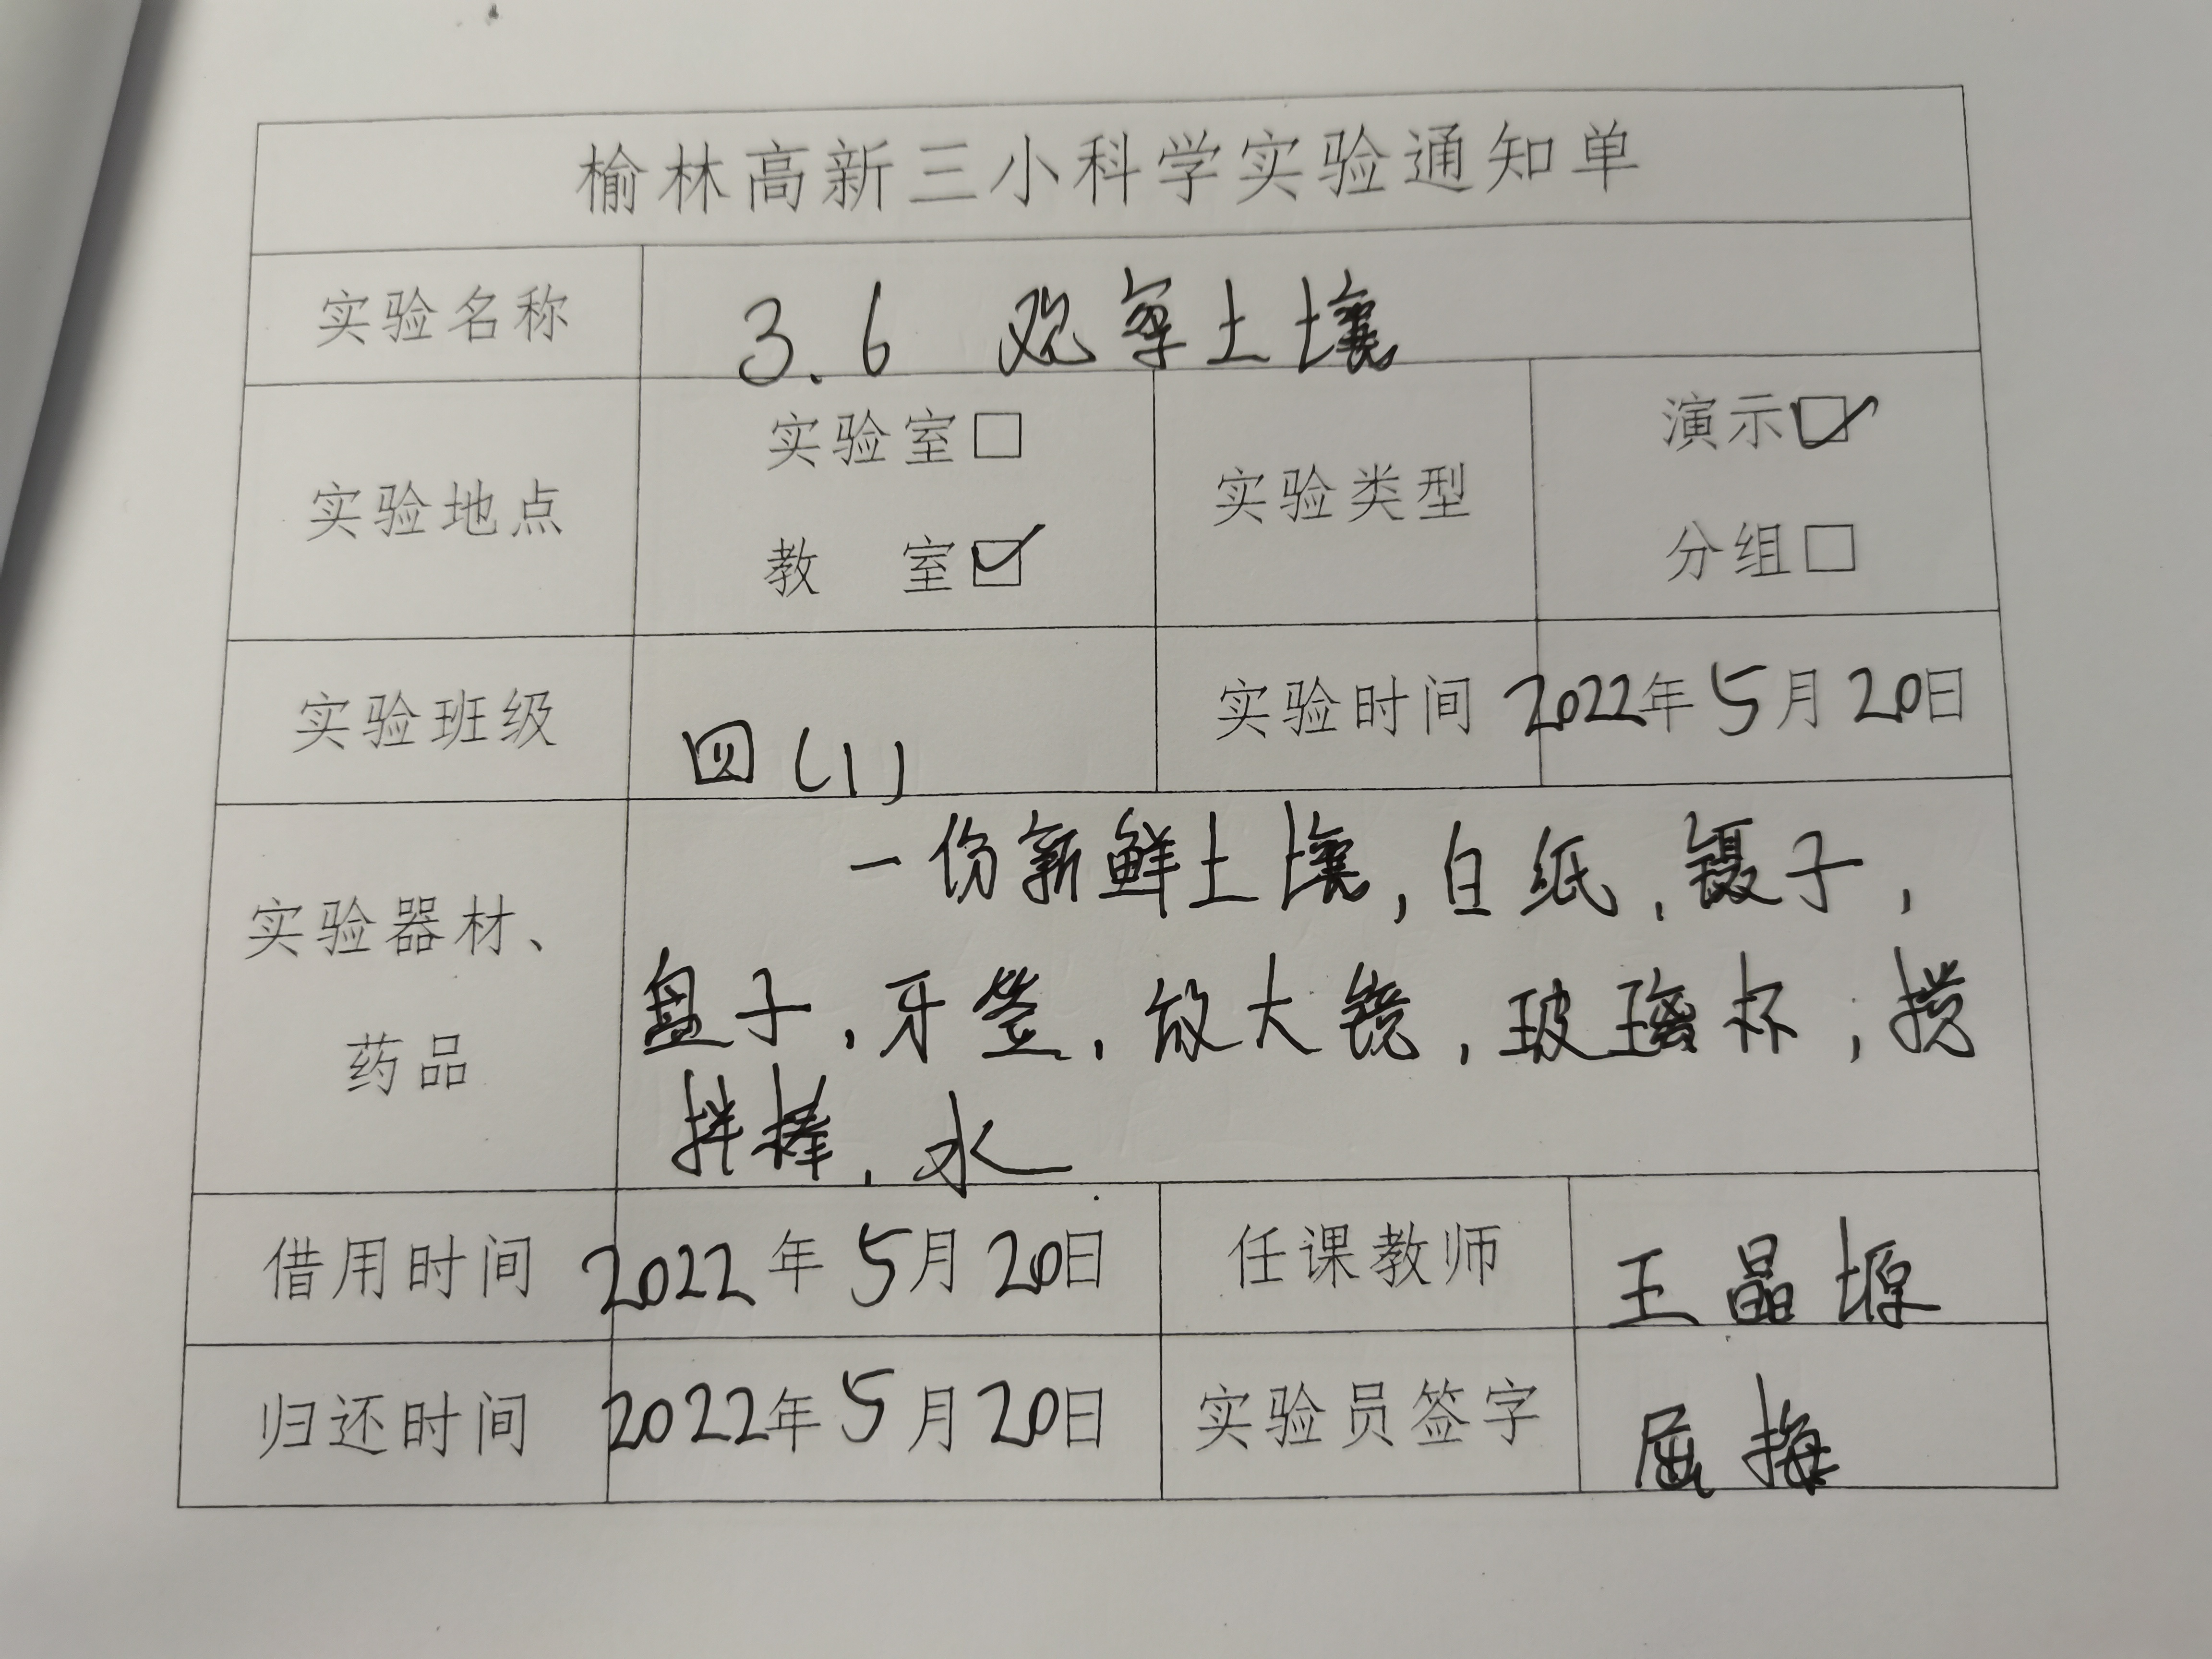 榆林高新三小科学实验通知单
实验名称 3.6 观察土壤
实验地点 实验室□ 教 室☑ 实验类型 演示☑ 分组□
实验班级 四(1) 实验时间 2022年5月20日
实验器材、药品
一份新鲜土壤,白纸,镊子,
盘子,牙签,放大镜,玻璃杯,搅
拌棒,水
借用时间 2022年5月20日 任课教师 王晶塬
归还时间 2022年5月20日 实验员签字 屈梅